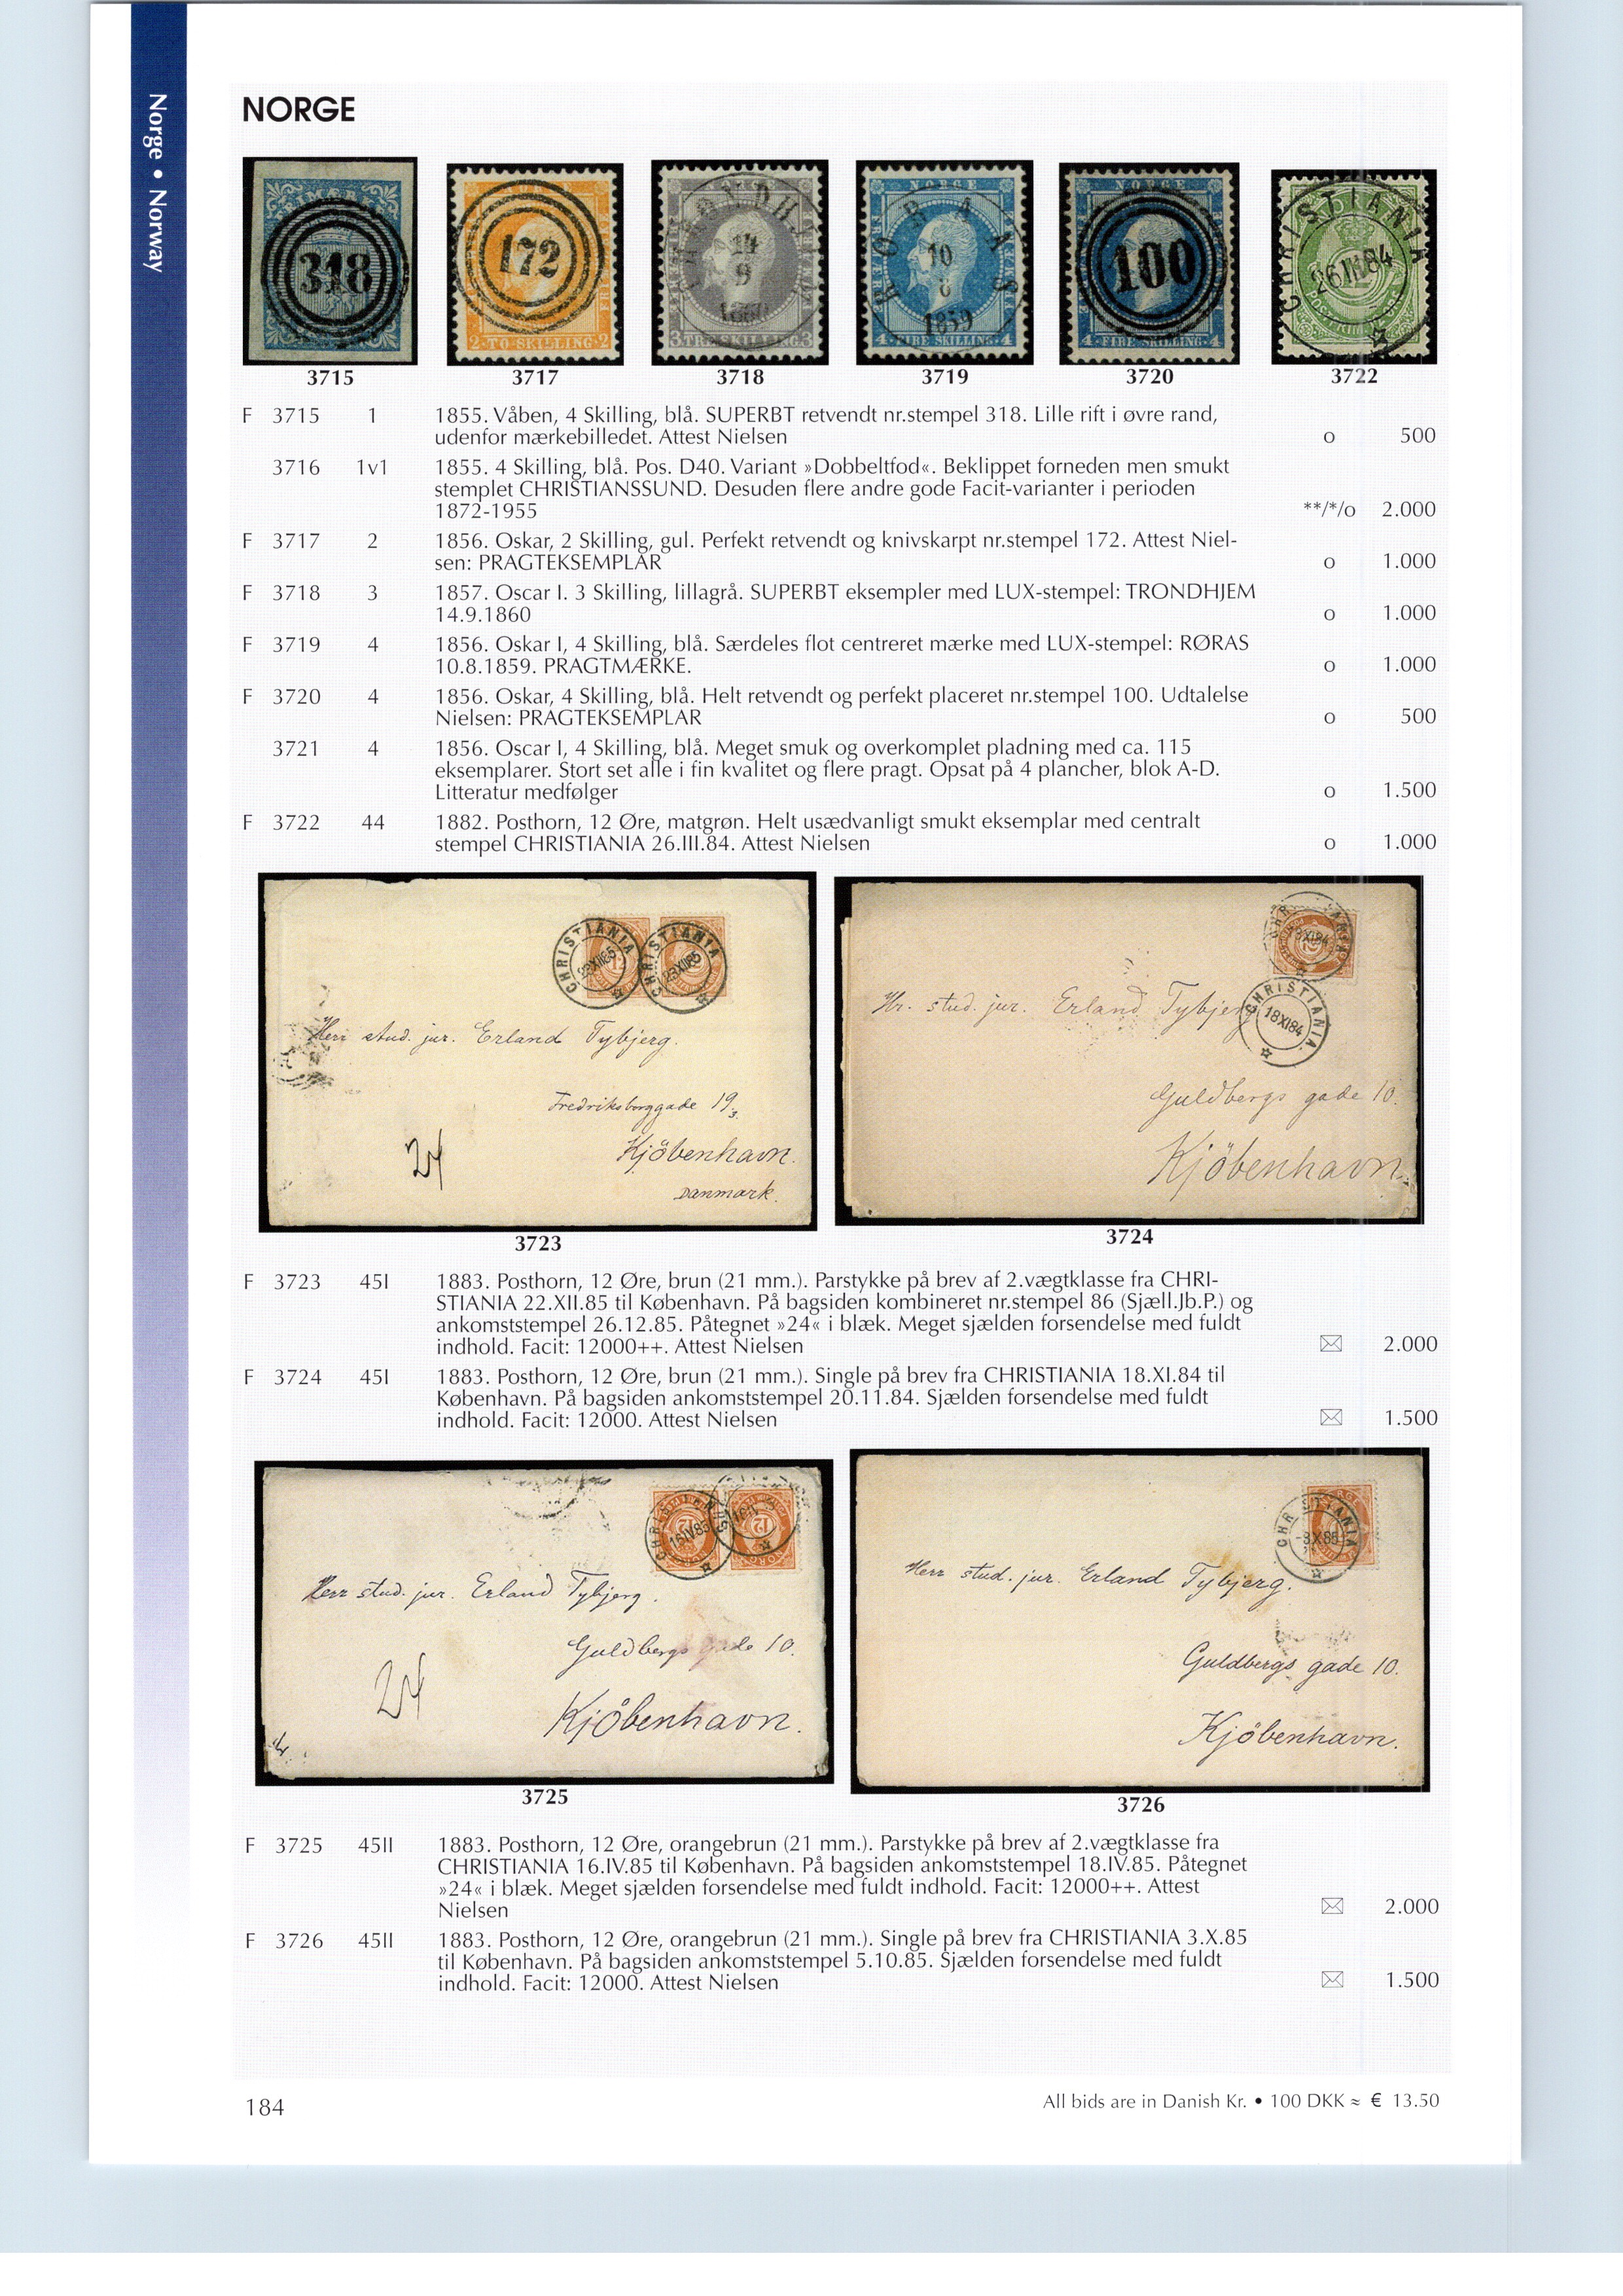 Norge • Norway
NORGE
318
172
2 TO SKILLING 2
14
9
NORGE
RØRAS
10
8
1859
4 FIRE SKILLING 4
NORGE
100
4 FIRE SKILLING 4
CHRISTIANIA
26III84
3715
3717
3718
3719
3720
3722
F 3715 1 1855. Våben, 4 Skilling, blå. SUPERBT retvendt nr.stempel 318. Lille rift i øvre rand,
udenfor mærkebilledet. Attest Nielsen o 500
3716 1v1 1855. 4 Skilling, blå. Pos. D40. Variant »Dobbeltfod«. Beklippet forneden men smukt
stemplet CHRISTIANSSUND. Desuden flere andre gode Facit-varianter i perioden
1872-1955 **/*/o 2.000
F 3717 2 1856. Oskar, 2 Skilling, gul. Perfekt retvendt og knivskarpt nr.stempel 172. Attest Niel-
sen: PRAGTEKSEMPLAR o 1.000
F 3718 3 1857. Oscar I. 3 Skilling, lillagrå. SUPERBT eksempler med LUX-stempel: TRONDHJEM
14.9.1860 o 1.000
F 3719 4 1856. Oskar I, 4 Skilling, blå. Særdeles flot centreret mærke med LUX-stempel: RØRAS
10.8.1859. PRAGTMÆRKE. o 1.000
F 3720 4 1856. Oskar, 4 Skilling, blå. Helt retvendt og perfekt placeret nr.stempel 100. Udtalelse
Nielsen: PRAGTEKSEMPLAR o 500
3721 4 1856. Oscar I, 4 Skilling, blå. Meget smuk og overkomplet pladning med ca. 115
eksemplarer. Stort set alle i fin kvalitet og flere pragt. Opsat på 4 plancher, blok A-D.
Litteratur medfølger o 1.500
F 3722 44 1882. Posthorn, 12 Øre, matgrøn. Helt usædvanligt smukt eksemplar med centralt
stempel CHRISTIANIA 26.III.84. Attest Nielsen o 1.000
CHRISTIANIA
23XII85
CHRISTIANIA
23XII85
Herr stud. jur. Erland Tybjerg.
Fredriksborggade 19 3.
Kjöbenhavn.
Danmark.
24
CHRISTIANIA
18XI84
Hr. stud. jur. Erland Tybjerg
Guldbergs gade 10.
Kjöbenhavn.
3723
3724
F 3723 45I 1883. Posthorn, 12 Øre, brun (21 mm.). Parstykke på brev af 2.vægtklasse fra CHRI-
STIANIA 22.XII.85 til København. På bagsiden kombineret nr.stempel 86 (Sjæll.Jb.P.) og
ankomststempel 26.12.85. Påtegnet »24« i blæk. Meget sjælden forsendelse med fuldt
indhold. Facit: 12000++. Attest Nielsen ✉ 2.000
F 3724 45I 1883. Posthorn, 12 Øre, brun (21 mm.). Single på brev fra CHRISTIANIA 18.XI.84 til
København. På bagsiden ankomststempel 20.11.84. Sjælden forsendelse med fuldt
indhold. Facit: 12000. Attest Nielsen ✉ 1.500
16IV85
12
Herr stud. jur. Erland Tybjerg.
Guldbergs gade 10.
Kjöbenhavn.
24
CHRISTIANIA
-3X85
Herr stud. jur. Erland Tybjerg.
Guldbergs gade 10.
Kjöbenhavn.
3725
3726
F 3725 45II 1883. Posthorn, 12 Øre, orangebrun (21 mm.). Parstykke på brev af 2.vægtklasse fra
CHRISTIANIA 16.IV.85 til København. På bagsiden ankomststempel 18.IV.85. Påtegnet
»24« i blæk. Meget sjælden forsendelse med fuldt indhold. Facit: 12000++. Attest
Nielsen ✉ 2.000
F 3726 45II 1883. Posthorn, 12 Øre, orangebrun (21 mm.). Single på brev fra CHRISTIANIA 3.X.85
til København. På bagsiden ankomststempel 5.10.85. Sjælden forsendelse med fuldt
indhold. Facit: 12000. Attest Nielsen ✉ 1.500
184
All bids are in Danish Kr. • 100 DKK ≈ € 13.50